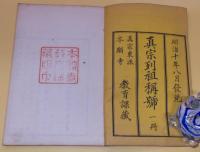 明治十年八月發兌
真宗列祖稱號 一冊
真宗東派
本願寺
教育課藏